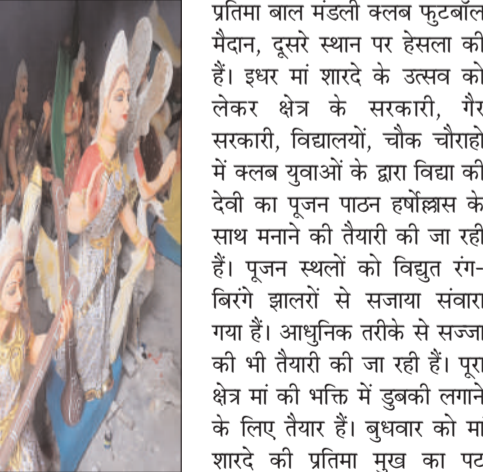 प्रतिमा बाल मंडली क्लब फुटबॉल
मैदान, दूसरे स्थान पर हेसला की
हैं। इधर मां शारदे के उत्सव को
लेकर क्षेत्र के सरकारी, गैर
सरकारी, विद्यालयों, चौक चौराहो
में क्लब युवाओं के द्वारा विद्या की
देवी का पूजन पाठन हर्षोल्लास के
साथ मनाने की तैयारी की जा रही
हैं। पूजन स्थलों को विद्युत रंग-
बिरंगे झालरों से सजाया संवारा
गया हैं। आधुनिक तरीके से सज्जा
की भी तैयारी की जा रही हैं। पूरा
क्षेत्र मां की भक्ति में डुबकी लगाने
के लिए तैयार हैं। बुधवार को मां
शारदे की प्रतिमा मुख का पट